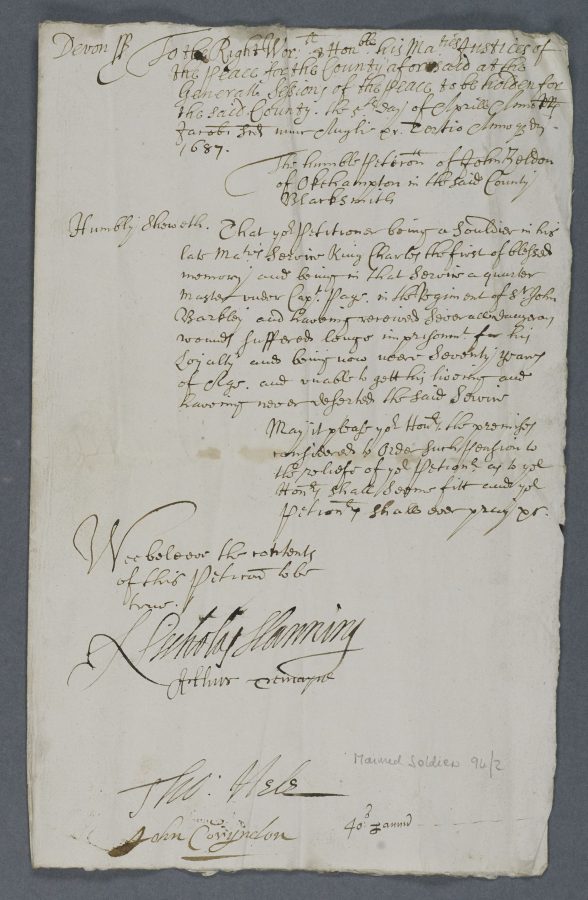 Devon ss To the Right Wor:ll & Hon:ble his Ma:ties Justices of
the Peace for the County aforesaid at the
Generall Sessions of the Peace to be holden for
the said County. the 5th day of Aprill Anno
Jacobi 2nd nunc Anglie &c. Tertio Annoq Dm̄
1687.
The humble Peticon of John Yeldon
of Okehampton in the said County
Blacksmith
Humbly Sheweth. That yor Petitioner being a Souldier in his
late Maties Service King Charles the first of blessed
memory and being in that Service a quarter
Master under Capt Page. in the Regiment of Sr John
Barkley and haveing received severall dangerous
wounds suffered longe imprisonmt for his
Loyalty and being now neere Seventy years
of Age. and unable to gett his liveing and
haveing never deserted the said Service
May it please yor Honrs the premises
considered to Order such Pension to
the reliefe of yor Petionr as to yor
Honrs shall seeme fitt and yor
Petionr shall ever pray &c.
Wee beleeve the contents
of this Peticon to be
true.
Nicholas Slanning
Arthur Tremayne
Maimed Soldier 94/2
Tho: Hele
John Coryndon 40s p annū